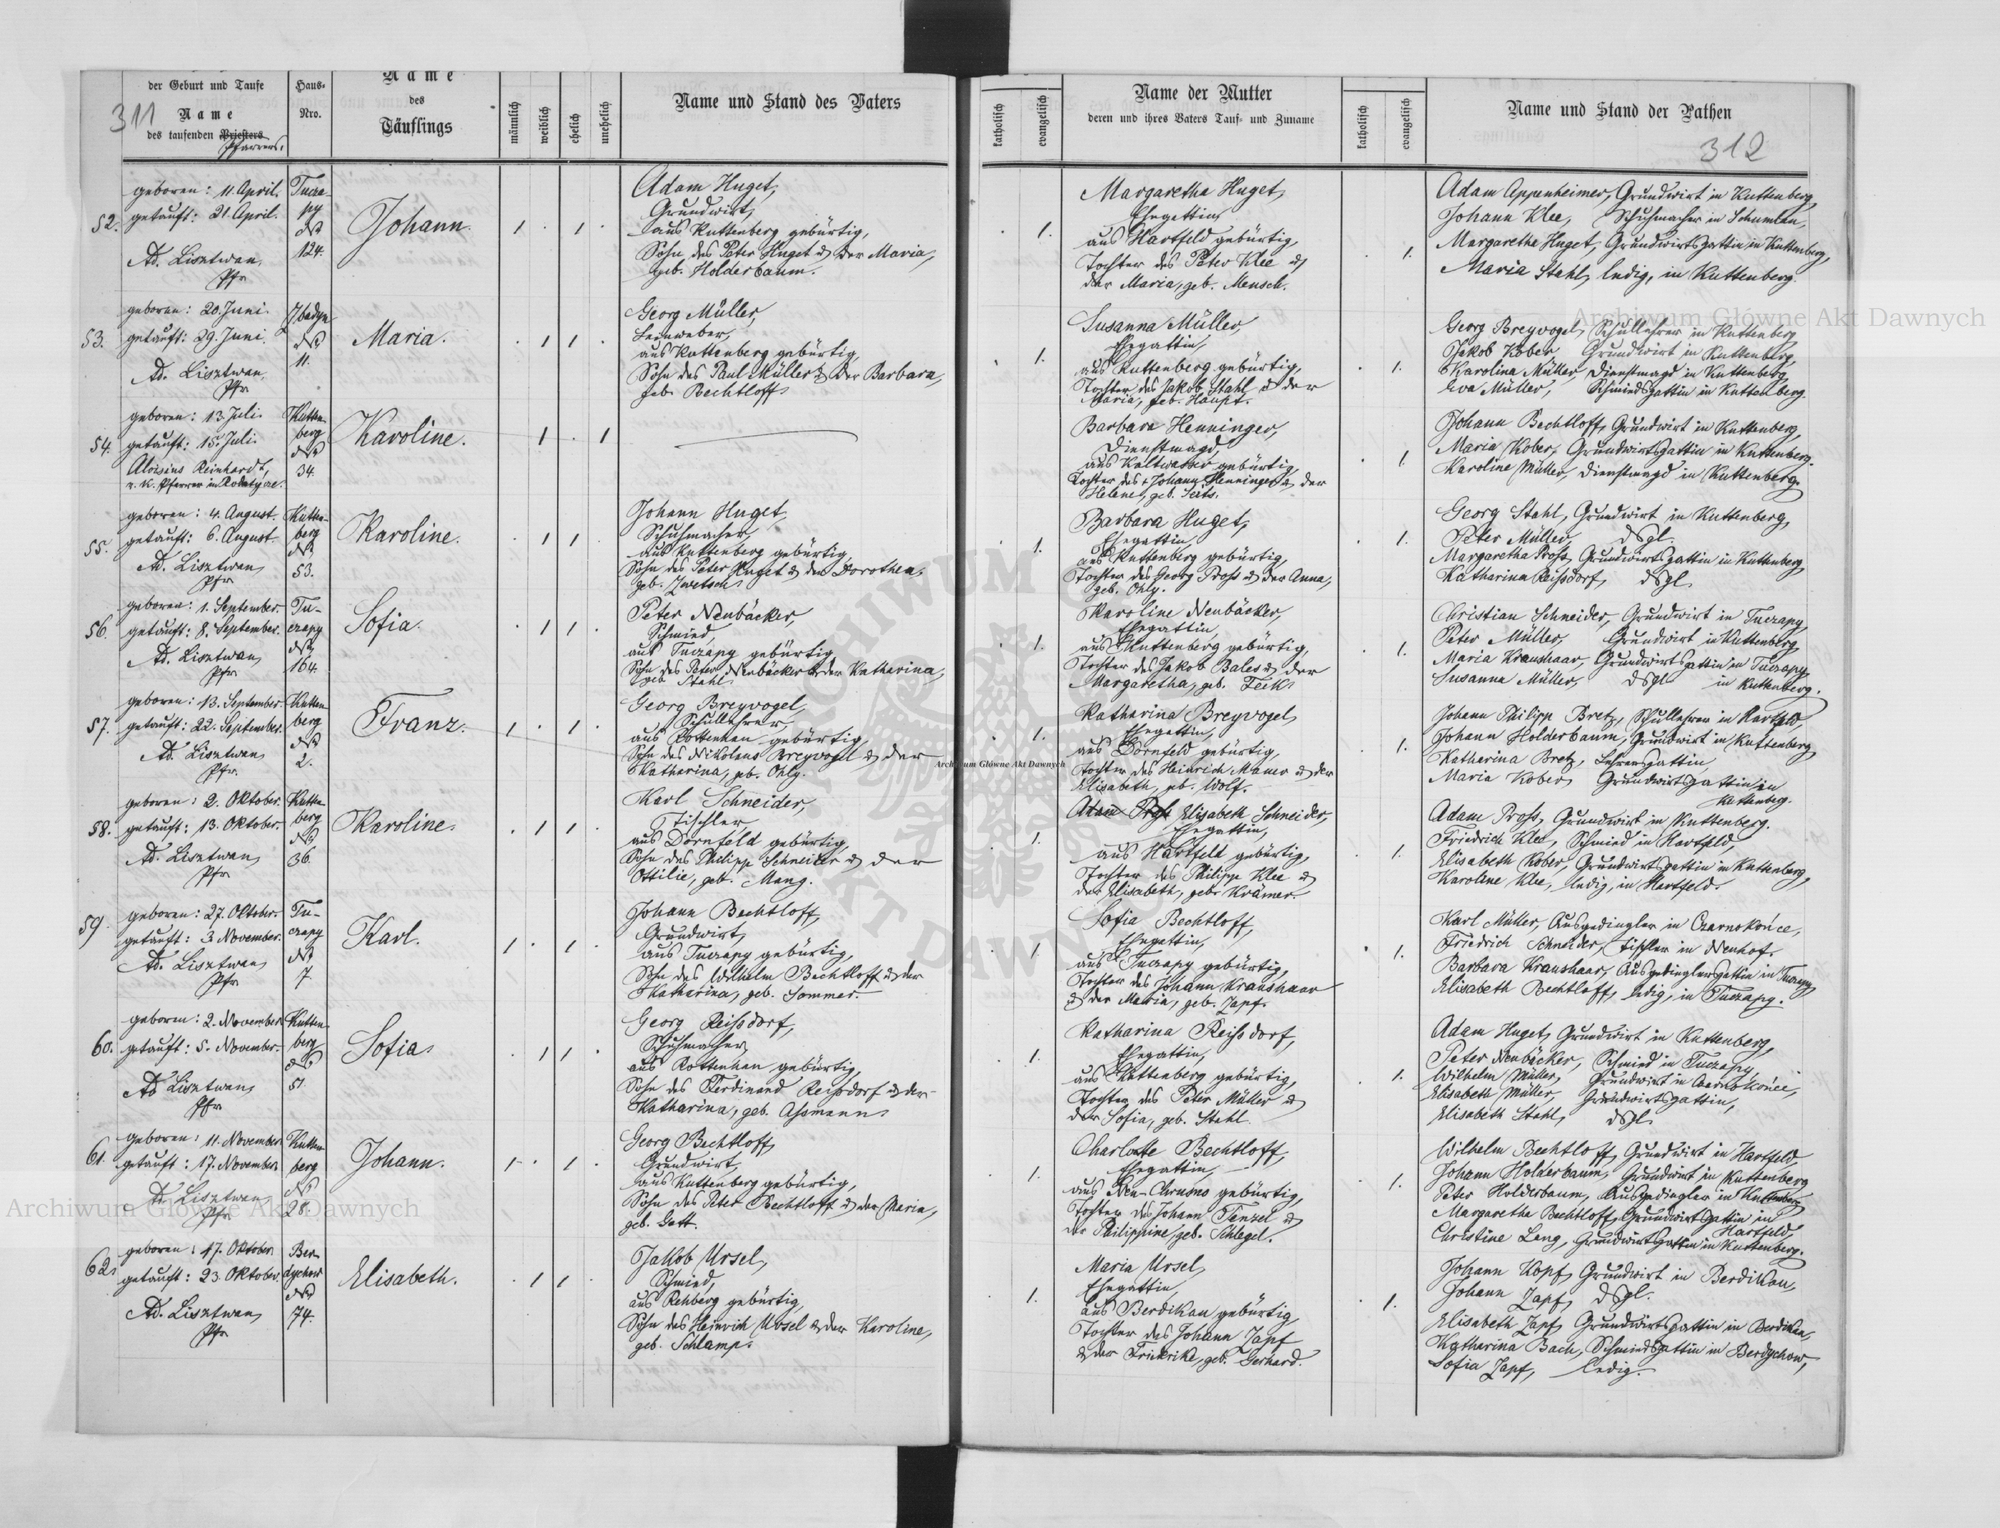 311
der Geburt und Taufe
Name
des taufenden Priesters
Pfarrers.
Haus-
Nro.
Name
des
Täuflings
männlich
weiblich
ehelich
unehelich
Name und Stand des Vaters
katholisch
evangelisch
Name der Mutter
deren und ihres Vaters Tauf- und Zuname
katholisch
evangelisch
Name und Stand der Pathen
312
52.
geboren: 11. April.
getauft: 21. April.
Ad. Lisztwan,
Pfr.
Tucza-
py
№
124.
Johann.
Adam Huget,
Grundwirt,
aus Kuttenberg gebürtig,
Sohn des Peter Huget & der Maria,
geb. Holderbaum.
Margaretha Huget,
Ehegattin,
aus Hartfeld gebürtig,
Tochter des Peter Klee &
der Maria, geb. Mensch.
Adam Appenheimer, Grundwirt in Kuttenberg,
Johann Klee, Schuhmacher in Schumlau,
Margaretha Huget, Grundwirtsgattin in Kuttenberg,
Maria Stahl, ledig, in Kuttenberg.
53.
geboren: 20. Juni.
getauft: 29. Juni.
Ad. Lisztwan,
Pfr.
№
11.
Maria.
Georg Müller,
Leinweber,
aus Kuttenberg gebürtig,
Sohn des Paul Müller & der Barbara,
geb. Bechtloff.
Susanna Müller,
Ehegattin,
aus Kuttenberg gebürtig,
Tochter des Jakob Stahl & der
Maria, geb. Haupt.
Georg Breyvogel, Schullehrer in Kuttenberg,
Jakob Kober, Grundwirt in Kuttenberg,
Karolina Müller, Dienstmagd in Kuttenberg,
Eva Müller, Schmiedsgattin in Kuttenberg.
54.
geboren: 13. Juli.
getauft: 15. Juli.
Aloisius Reinhardt,
r. k. Pfarrer in Rodatycze.
Kutten-
berg
№
34.
Karoline.
Barbara Henninger,
Dienstmagd,
aus Kaltwasser gebürtig,
Tochter des † Johann Henninger & der
Helene, geb. Seits.
Johann Bechtloff, Grundwirt in Kuttenberg,
Maria Kober, Grundwirtsgattin in Kuttenberg.
Karoline Müller, Dienstmagd in Kuttenberg.
55.
geboren: 4. August.
getauft: 6. August.
Ad. Lisztwan,
Pfr.
Kutten-
berg
№
53.
Karoline.
Johann Huget,
Schuhmacher,
aus Kuttenberg gebürtig,
Sohn des Peter Huget & der Dorothea,
geb. Zwetsch.
Barbara Huget,
Ehegattin,
aus Kuttenberg gebürtig,
Tochter des Georg Pross & der Anna,
geb. Ohly.
Georg Stahl, Grundwirt in Kuttenberg,
Peter Müller, dsgl.
Margaretha Pross, Grundwirtsgattin in Kuttenberg,
Katharina Reissdorf, dsgl.
56.
geboren: 1. September.
getauft: 8. September.
Ad. Lisztwan,
Pfr.
Tu-
czapy
№
164.
Sofia.
Peter Neubäcker,
Schmied,
aus Tuczapy gebürtig,
Sohn des Peter Neubäcker & der Katharina,
geb. Stahl.
Karoline Neubäcker,
Ehegattin,
aus Kuttenberg gebürtig,
Tochter des Jakob Bales & der
Margaretha, geb. Feik.
Christian Schneider, Grundwirt in Tuczapy,
Peter Müller, Grundwirt in Kuttenberg,
Maria Kraushaar, Grundwirtsgattin in Tuczapy,
Susanna Müller, dsgl. in Kuttenberg.
57.
geboren: 13. September.
getauft: 22. September.
Ad. Lisztwan,
Pfr.
Kutten-
berg
№
2.
Franz.
Georg Breyvogel,
Schullehrer,
aus Rottenhan gebürtig,
Sohn des Nikolaus Breyvogel & der
Katharina, geb. Ohly.
Katharina Breyvogel,
Ehegattin,
aus Dornfeld gebürtig,
Tochter des Heinrich Maner & der
Elisabeth, geb. Wolf.
Johann Philipp Bretz, Schullehrer in Hartfeld,
Johann Holderbaum, Grundwirt in Kuttenberg,
Katharina Bretz, Lehrersgattin
Maria Kober, Grundwirtsgattin in
Kuttenberg.
58.
geboren: 2. Oktober.
getauft: 13. Oktober.
Ad. Lisztwan,
Pfr.
Kutten-
berg
№
36.
Karoline.
Karl Schneider,
Tischler,
aus Dornfeld gebürtig,
Sohn des Philipp Schneider & der
Ottilie, geb. Mang.
Adam Pross Elisabeth Schneider,
Ehegattin,
aus Hartfeld gebürtig,
Tochter des Philipp Klee &
der Elisabeth, geb. Krämer.
Adam Pross, Grundwirt in Kuttenberg.
Friedrich Klee, Schmied in Hartfeld,
Elisabeth Kober, Grundwirtsgattin in Kuttenberg,
Karoline Klee, ledig, in Hartfeld.
59.
geboren: 27. Oktober.
getauft: 3. November.
Ad. Lisztwan,
Pfr.
Tu-
czapy
№
7.
Karl.
Johann Bechtloff,
Grundwirt,
aus Tuczapy gebürtig,
Sohn des Wilhelm Bechtloff & der
Katharina, geb. Sommer.
Sofia Bechtloff,
Ehegattin,
aus Tuczapy gebürtig,
Tochter des Johann Kraushaar
& der Maria, geb. Zapf.
Karl Müller, Ausgedingler in Czarnokońce,
Friedrich Schneider, Tischler in Neuhof.
Barbara Kraushaar, Ausgedinglersgattin in Tuczapy,
Elisabeth Bechtloff, ledig, in Tuczapy.
60.
geboren: 2. November.
getauft: 5. November.
Ad. Lisztwan,
Pfr.
Kutten-
berg
№
51.
Sofia.
Georg Reissdorf,
Schuhmacher,
aus Rottenhan gebürtig,
Sohn des Ferdinand Reissdorf & der
Katharina, geb. Assmann.
Katharina Reissdorf,
Ehegattin,
aus Kuttenberg gebürtig,
Tochter des Peter Müller &
der Sofia, geb. Stahl.
Adam Huget, Grundwirt in Kuttenberg,
Peter Neubäcker, Schmied in Tuczapy,
Wilhelm Müller, Grundwirt in Czarnokońce,
Elisabeth Müller, Grundwirtsgattin,
Elisabeth Stahl, dsgl.
61.
geboren: 11. November.
getauft: 17. November.
Ad. Lisztwan,
Pfr.
Kutten-
berg
№
28.
Johann.
Georg Bechtloff,
Grundwirt,
aus Kuttenberg gebürtig,
Sohn des Peter Bechtloff & der Maria,
geb. Gott.
Charlotte Bechtloff,
Ehegattin,
aus Neu-Chrusno gebürtig,
Tochter des Johann Tenzel &
der Philippine, geb. Schlegel.
Wilhelm Bechtloff, Grundwirt in Hartfeld,
Johann Holderbaum, Grundwirt in Kuttenberg
Peter Holderbaum, Ausgedingler in Kuttenberg,
Margaretha Bechtloff, Grundwirtsgattin in
Hartfeld,
Christine Leng, Grundwirtsgattin in Kuttenberg.
62.
geboren: 17. Oktober.
getauft: 23. Oktober.
Ad. Lisztwan,
Pfr.
Ber-
dychow
№
74.
Elisabeth.
Jakob Ursel,
Schmied,
aus Rehberg gebürtig,
Sohn des Heinrich Ursel & der Karoline,
geb. Schlamp.
Maria Ursel,
Ehegattin,
aus Berdikau gebürtig,
Tochter des Johann Zapf
& der Friedrike, geb. Gerhard.
Johann Kopf, Grundwirt in Berdikau,
Johann Zapf, dsgl.
Elisabeth Zapf, Grundwirtsgattin in Berdikau,
Katharina Bach, Schmiedsgattin in Berdychow,
Sofia Zapf, ledig.
Archiwum Główne Akt Dawnych
Archiwum Główne Akt Dawnych
Archiwum Główne Akt Dawnych